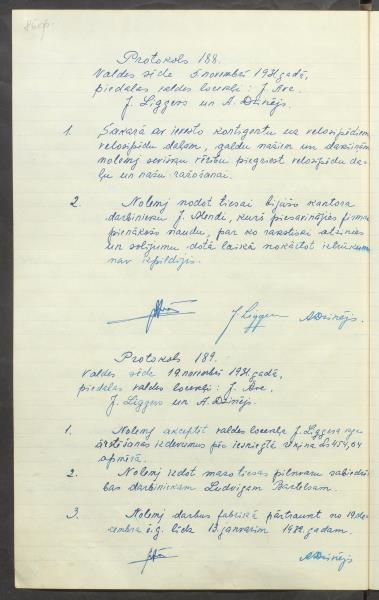 Protokols 188.
Valdes sēde 5.novembrī 1931.gadā,
piedalās valdes locekļi: J. Ave.
J. Liggers un A. Dzinējs.
1. Sakarā ar ievesto kontigentu uz velosipēdiem,
velosipēdu daļām, galdu nažiem un dakšiņām
nolemj sevišķu vērību piegriezt velosipēdu da-
ļu un nažu ražošanai.
2. Nolemj nodot tiesai bijušo kantora
darbinieku J. kurš piesavinājies firmai
pienākošo naudu, par ko rakstiski atzinies
un solījumu dotā laikā nokārtot iztrūkumu
nav izpildījis.
J Liggers ADzinējs.
Protokols 189.
Valdes sēde 19.novembrī 1931.gadā,
piedalās valdes locekļi: J. Ave.
J. Liggers un A. Dzinējs.
1. Nolemj akceptēt valdes locekļa J. Liggera
ārstēšanas izdevumus pēc iesniegtā rēķina Ls 454,64
apmērā.
2. Nolemj izdot mazo tiesas pilnvaru sabiedrī-
bas darbiniekam Ludvigam Bartelsam.
3. Nolemj darbus fabrikā pārtraukt no 19.de-
cembra š.g. līdz 13.janvarim 1932.gadam.
ADzinējs